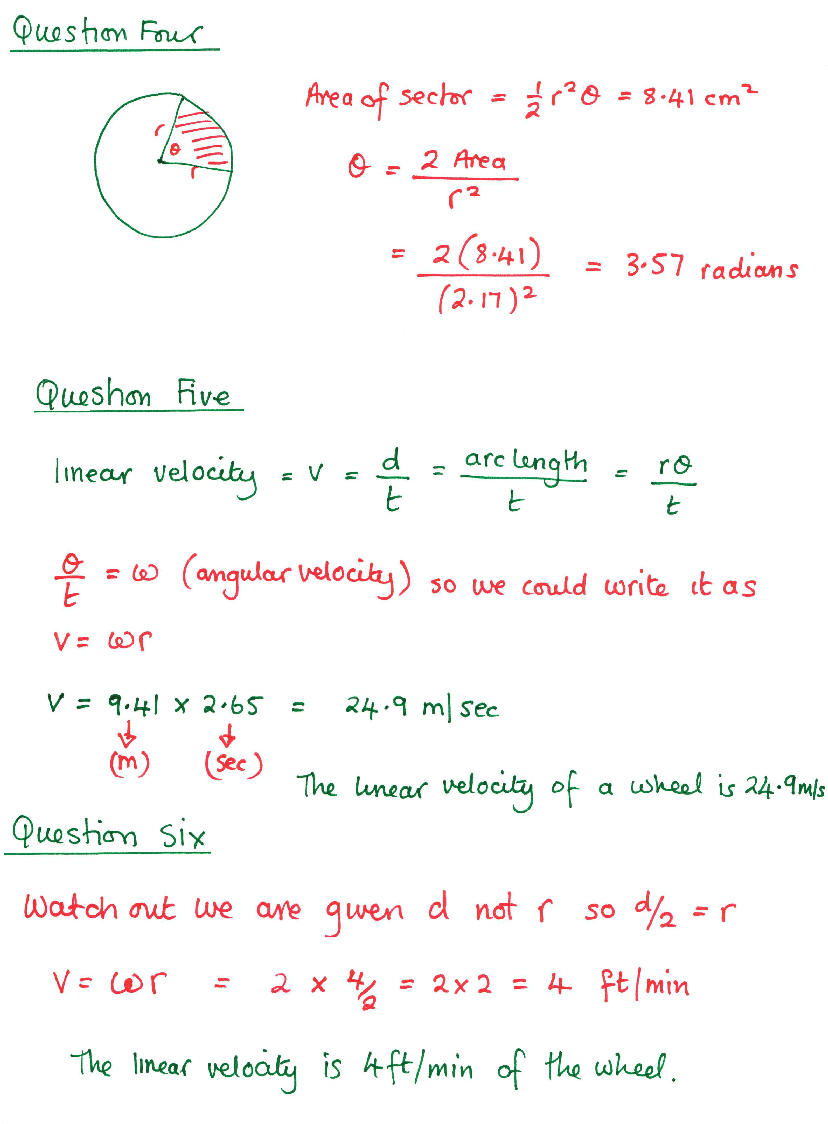 Question Four
Area of sector = 1/2 r²θ = 8.41 cm²
r
θ
r
θ = 2 Area / r²
= 2(8.41) / (2.17)² = 3.57 radians
Question Five
linear velocity = v = d/t = arc length/t = rθ/t
θ/t = ω (angular velocity) so we could write it as
v = ωr
V = 9.41 × 2.65 = 24.9 m/sec
(m) (sec)
The linear velocity of a wheel is 24.9m/s
Question Six
Watch out we are given d not r so d/2 = r
V = ωr = 2 × 4/2 = 2×2 = 4 ft/min
The linear velocity is 4ft/min of the wheel.